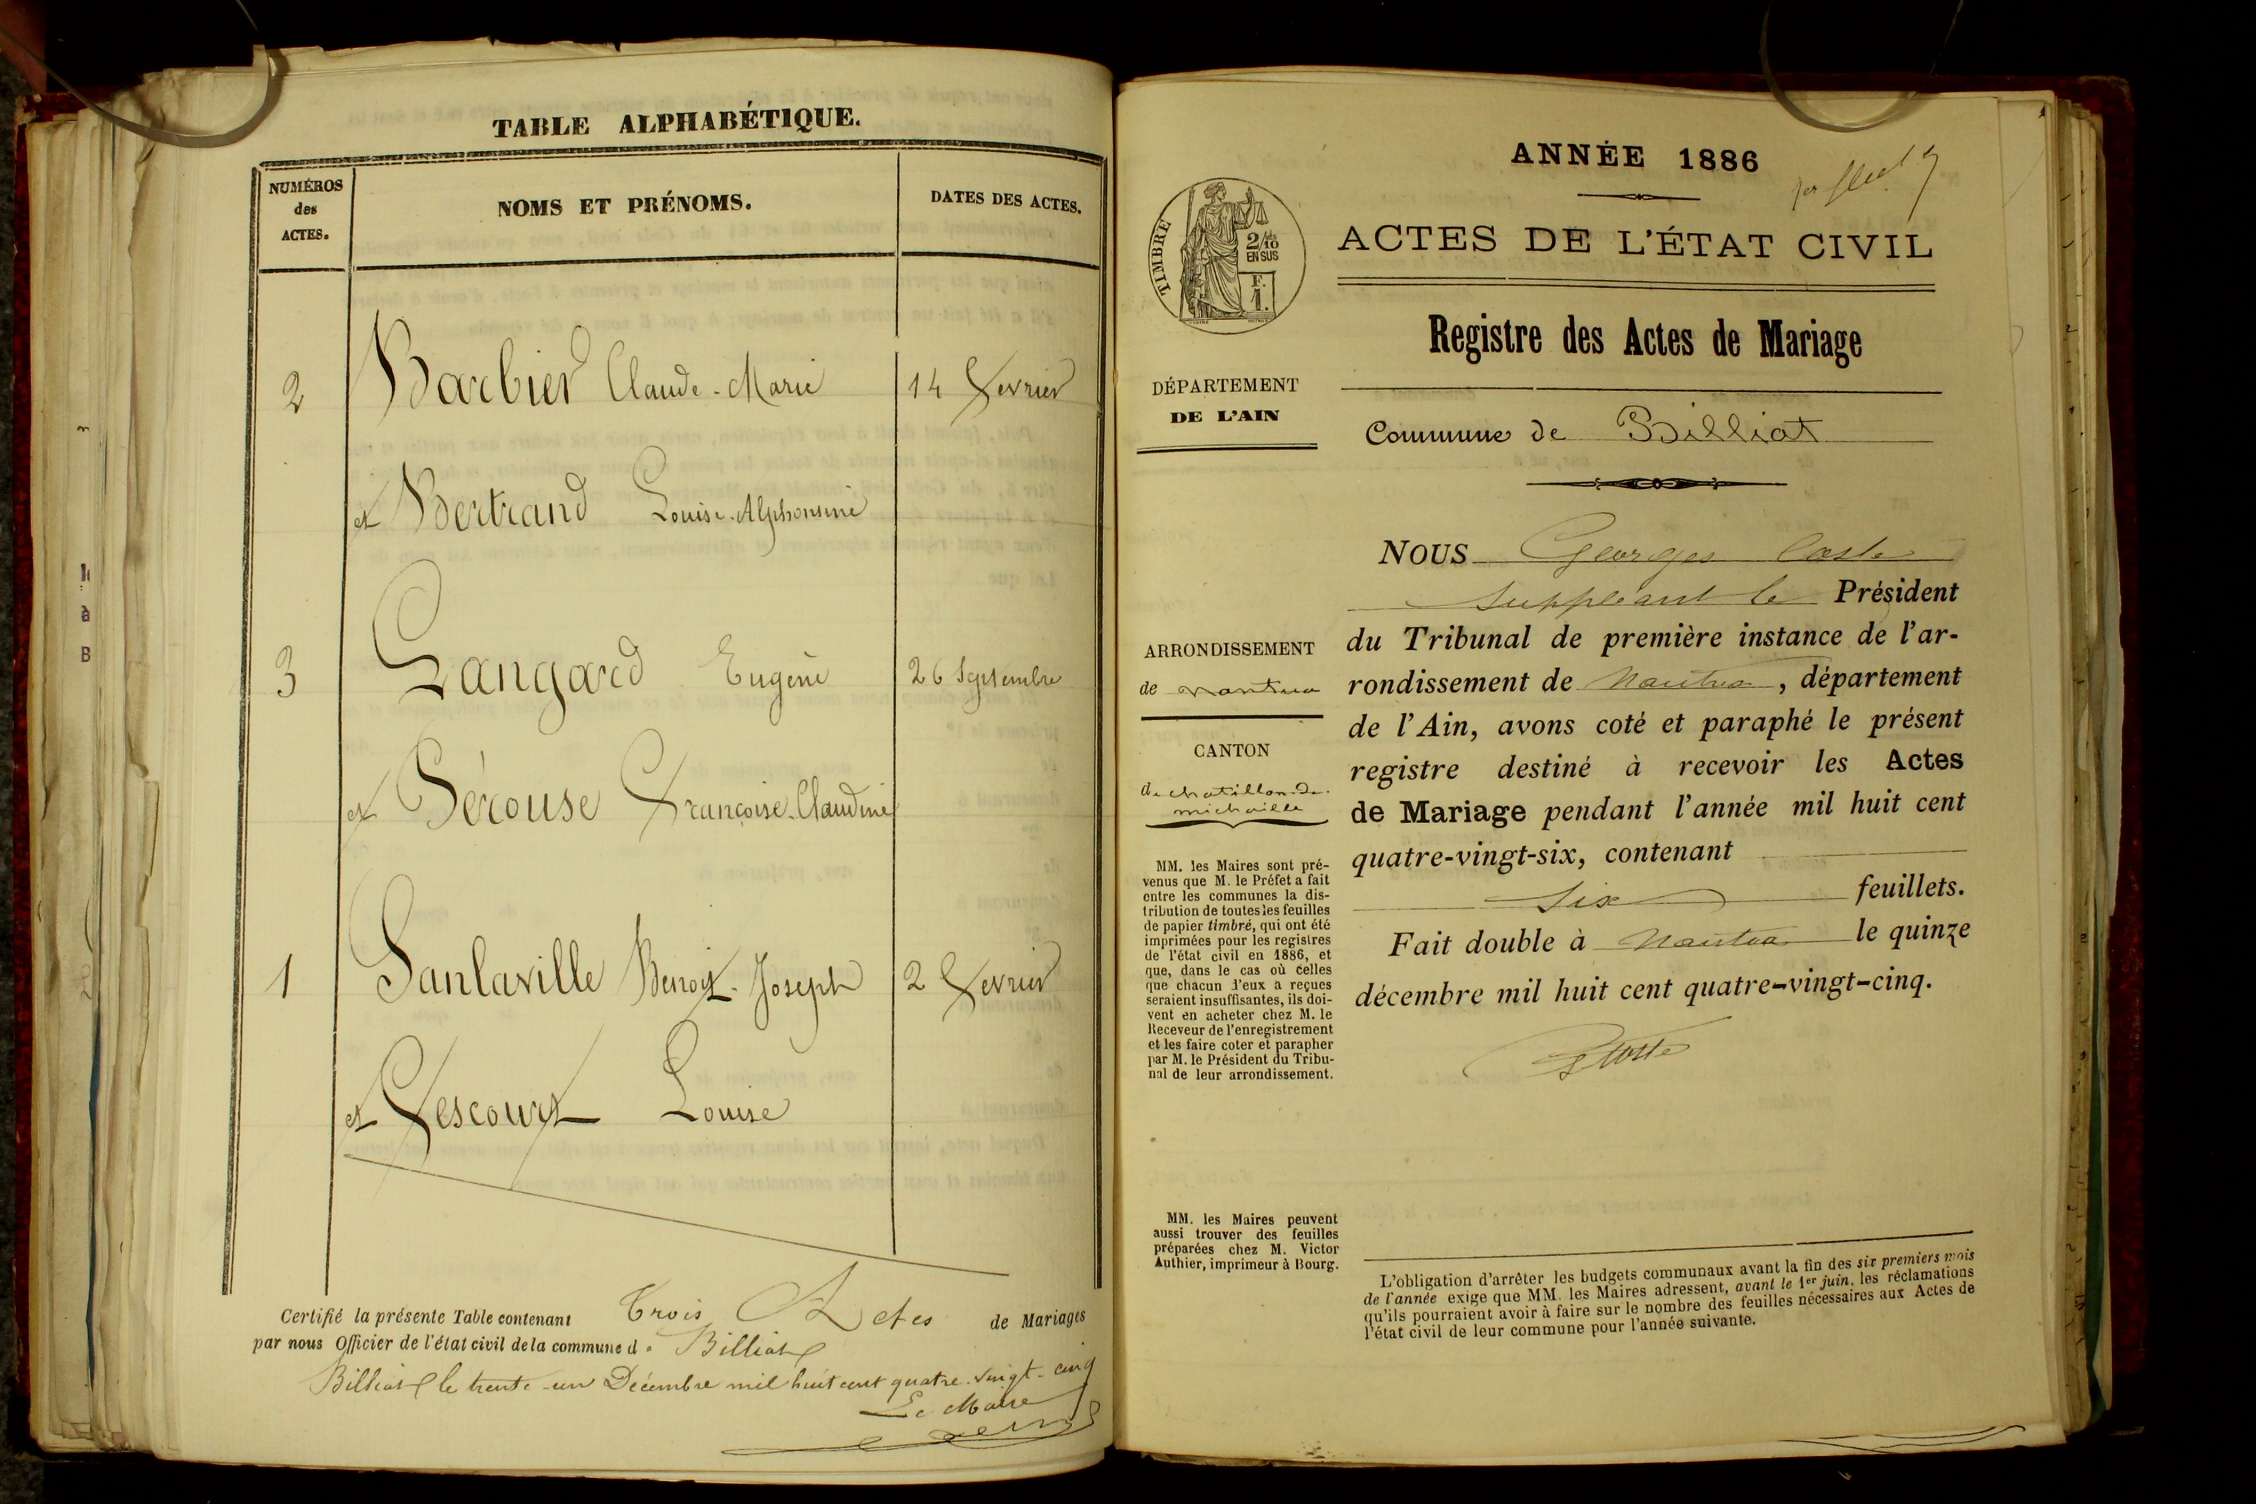 TABLE ALPHABÉTIQUE.
NUMÉROS
des
ACTES.
NOMS ET PRÉNOMS.
DATES DES ACTES.
2 Barbier Claude-Marie 14 Fevrier
et Bertrand Louise-Alphonsine
3 Langard Eugène 26 Septembre
et Pérouse Françoise-Claudine
1 Sanlaville Benoit-Joseph 2 Fevrier
et Lescourt Louise
Certifié la présente Table contenant Trois Actes de Mariages
par nous Officier de l'état civil de la commune d e Billiat
Billiat le trente-un Décembre mil huit cent quatre-vingt-cinq
Le Maire
ANNÉE 1886
ACTES DE L'ÉTAT CIVIL
TIMBRE
2/10
EN SUS
F.
1.
Registre des Actes de Mariage
DÉPARTEMENT
DE L'AIN
Commune de Billiat
NOUS Georges Coste
suppléant le Président
du Tribunal de première instance de l'ar-
rondissement de Nantua, département
de l'Ain, avons coté et paraphé le présent
registre destiné à recevoir les Actes
de Mariage pendant l'année mil huit cent
quatre-vingt-six, contenant
six feuillets.
Fait double à Nantua le quinze
décembre mil huit cent quatre-vingt-cinq.
GCoste
ARRONDISSEMENT
de Nantua
CANTON
de Chatillon-de-
michaille
MM. les Maires sont pré-
venus que M. le Préfet a fait
entre les communes la dis-
tribution de toutes les feuilles
de papier timbré, qui ont été
imprimées pour les registres
de l'état civil en 1886, et
que, dans le cas où celles
que chacun d'eux a reçues
seraient insuffisantes, ils doi-
vent en acheter chez M. le
Receveur de l'enregistrement
et les faire coter et parapher
par M. le Président du Tribu-
nal de leur arrondissement.
MM. les Maires peuvent
aussi trouver des feuilles
préparées chez M. Victor
Authier, imprimeur à Bourg.
L'obligation d'arrêter les budgets communaux avant la fin des six premiers mois
de l'année exige que MM. les Maires adressent, avant le 1er juin, les réclamations
qu'ils pourraient avoir à faire sur le nombre des feuilles nécessaires aux Actes de
l'état civil de leur commune pour l'année suivante.